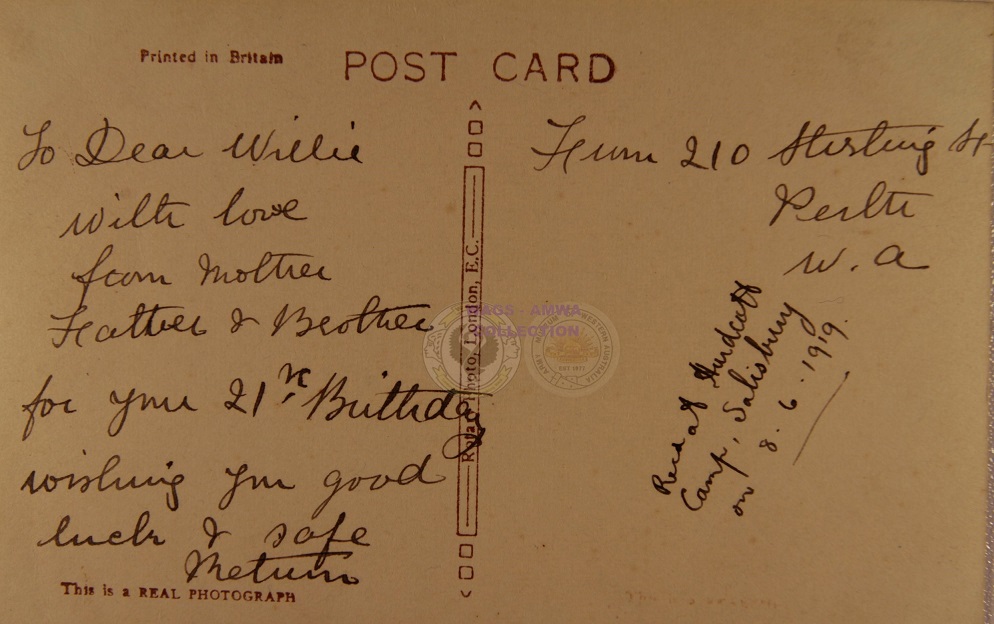 Printed in Britain
POST CARD
To Dear Willie
with love
from Mother
Father & Brother
for your 21st Birthday
wishing you good
luck & safe
Return
This is a REAL PHOTOGRAPH
Photo, London, E.C.
From 210 Stirling St
Perth
W.A
Recd at Hurdcott
Camp, Salisbury
on 8.6.1919.
AGS - AMWA
COLLECTION